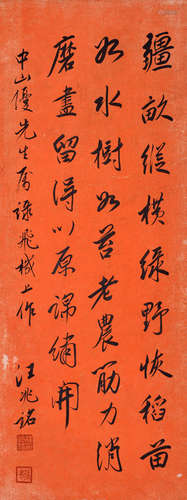 疆畝縱橫綠野恢稻苗
如水樹如苔老農筋力消
磨盡留得川原錦繡開
中山優先生屬錄飛機上作
汪兆銘